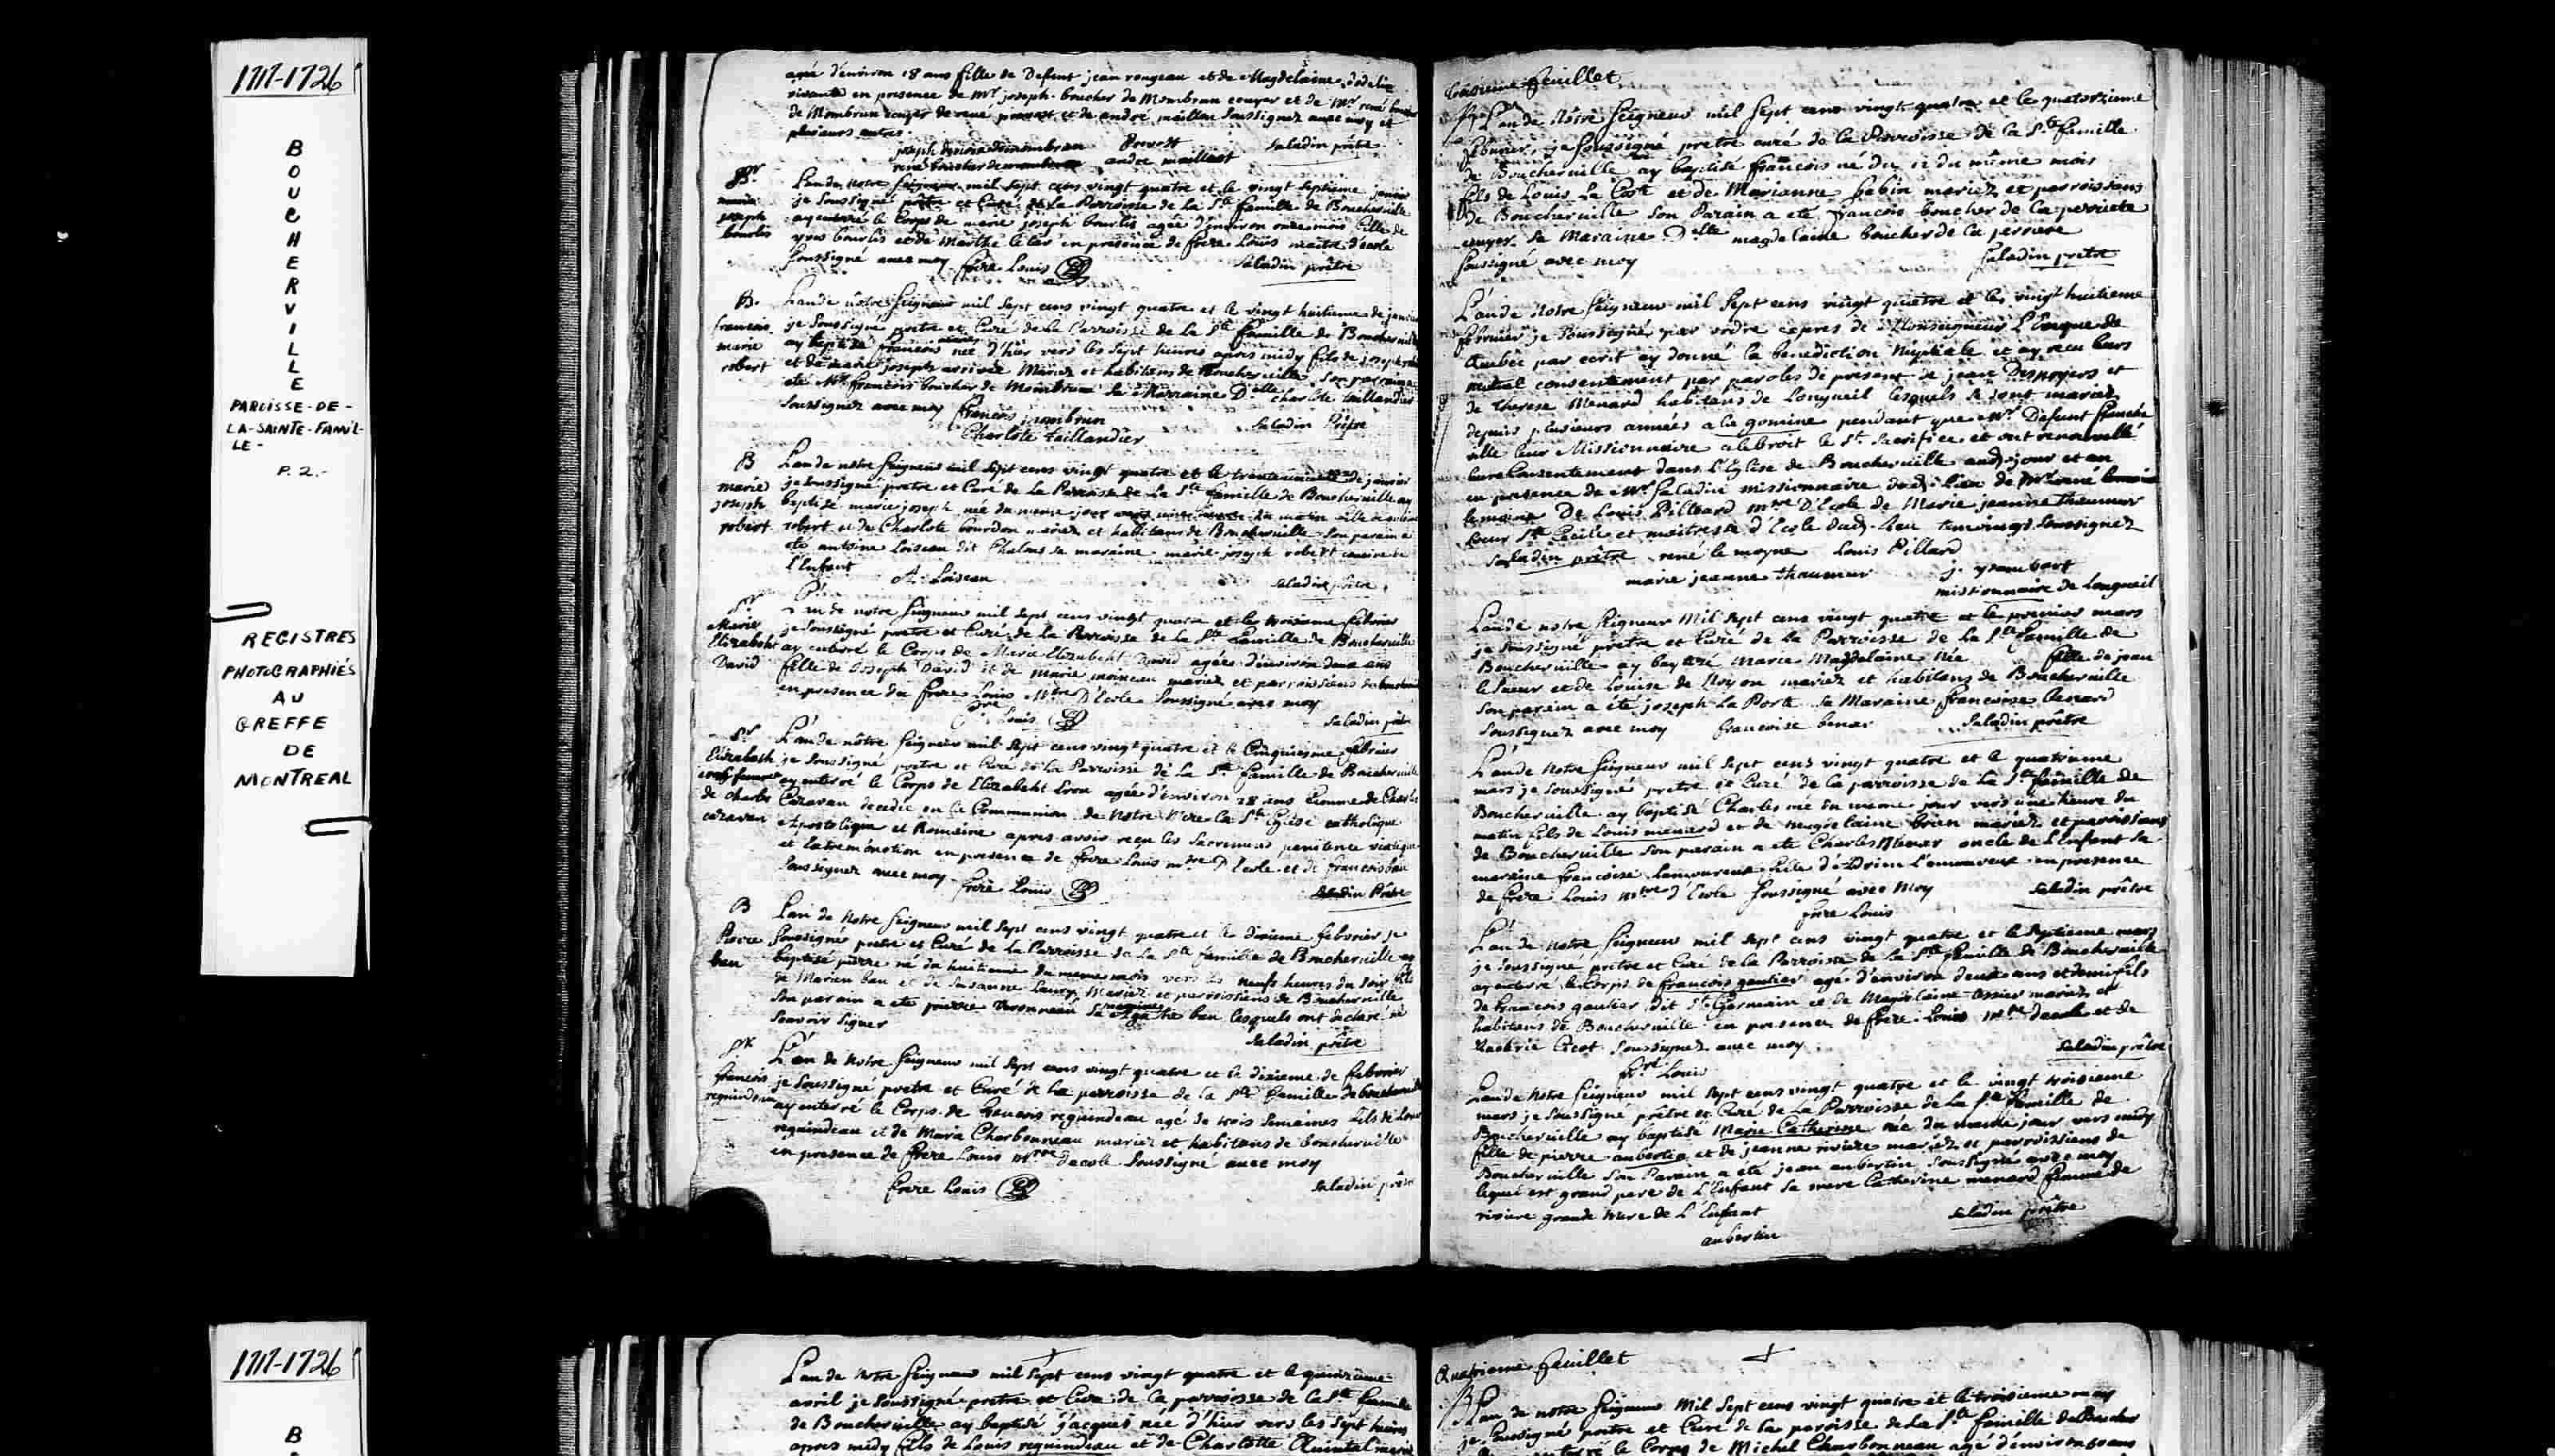 1717-1726
BOUCHERVILLE
PAROISSE-DE-
LA-SAINTE-FAMIL-
LE-
P. 2.-
REGISTRES
PHOTOGRAPHIÉS
AU
GREFFE
DE
MONTREAL
agée d'environ 18 ans fille de Defunt jean rougeau et de Magdelaine
vivante en presence de Mr joseph boucher de Mombrun ecuyer et de Mr rené
de Mombrun ecuyer de rené prevost et de andré maillou soussignez avec moy et
plusieurs autres
Prevost saladin prêtre
andré maillout
Sr
marie
joseph
bourlis
L'an de notre Seigneur mil sept cens vingt quatre et le vingt septieme janvier
je soussigné prêtre et Curé de La Parroisse de la Ste famille de Boucherville
ay enterré le Corps de marie joseph bourlis agée d'environ onze mois fille de
yves bourlis et de Marthe en presence de frere Louis maitre d'ecole
soussigné avec moy frere Louis saladin prêtre
B.
francois
marie
robert
L'an de nôtre Seigneur mil sept cens vingt quatre et le vingt huitieme de janvier
je soussigné prêtre et Curé de La Parroisse de La Ste famille de Boucherville
ay baptisé francois marie né d'hier vers les sept heures apres midy fils de
et de marie joseph Mariez et habitans de Boucherville. son parrain a
eté Mr francois boucher de Mombrun sa Marraine Delle charlote taillandier
soussignez avec moy francois mombrun
Charlote taillandier saladin Prêtre
B
marie
joseph
robert
L'an de notre Seigneur mil sept cens vingt quatre et le de janvier
je soussigné prêtre et Curé de La Parroisse de La Ste famille de Boucherville ay
baptisé marie joseph née du meme jour du matin fille de
robert et de Charlote bourdon mariez et habitans de Boucherville son parain a
eté antoine Loiseau dit Chalons sa maraine marie joseph robert cousine de
l'Enfant A. Loiseau saladin prêtre
Sr
Marie
Elizabeht
David
L'an de notre Seigneur mil sept cens vingt quatre et le troisieme febvrier
je soussigné prêtre et Curé de la Parroisse de la Ste famille de Boucherville
ay enterré le Corps de Marie Elizabeht David agée d'environ deux ans
fille de Joseph David et de marie mariez et parroissiens de boucherville
en presence du frere Louis Mtre D'Ecole soussigné avec moy
fre Louis saladin prêtre
Sr
Elizabeth
femme
de charles
cazavan
L'an de nôtre Seigneur mil sept cens vingt quatre et le Cinquiesme febvrier
je soussigné prêtre et Curé de la Parroisse de La Ste famille de Boucherville
ay enterré le Corps de Elizabeht agée d'environ 28 ans femme de Charles
Cazavan decedée en la Communion de notre Mere la Ste Eglise catholique
Apostolique et Romaine apres avoir reçu les Sacremens penitence viatique
et Extremeonction en presence de frere Louis mtre D'Ecole et de francois bau
soussignez avec moy frere Louis saladin Prêtre
B
Pierre
bau
L'an de Notre Seigneur mil sept cens vingt quatre et le dixieme febvrier je
soussigné prêtre et Curé de La Parroisse de La Ste famille de Boucherville ay
baptisé pierre né du huitieme du meme mois vers les neufs heures du soir fils
de Marien bau et de Susanne Mariez et parroissiens de Boucherville
son parain a eté pierre Veronneau sa maraine Agathe bau lesquels ont declaré ne
sçavoir signer saladin prêtre
Sr
francois
reguindeau
L'an de Notre Seigneur mil sept cens vingt quatre et le dixieme de febvrier
je soussigné prêtre et Curé de la parroisse de la Ste famille de boucherville
ay enterré le Corps de francois reguindeau agé de trois semaines fils de Louis
reguindeau et de Marie Charbonneau mariez et habitans de boucherville
en presence de frere Louis Mtre decole soussigné avec moy
frere Louis saladin prêtre
troisieme feuillet
L'an de Nôtre Seigneur mil sept cens vingt quatre et le quatorzieme
febvrier, je soussigné prêtre curé de la Parroisse de la Ste famille
de Boucherville ay baptisé francois né du 12 du même mois
fils de Louis La Coste et de Marianne babin mariez et parroissiens
de Boucherville son Parain a eté francois boucher de la perriere
ecuyer sa Maraine Delle magdelaine boucher de la perriere
soussigné avec moy saladin prêtre
L'an de Notre Seigneur mil sept cens vingt quatre et le vingt huitieme
febvrier je soussigné par ordre expres de Monseigneur L'Eveque de
Quebec par ecrit ay donné la benediction Nuptiale et ay recu leurs
mutuel consentement par paroles de present de jean Desnoyers et
de therese Menard habitans de Longueil lesquels se sont mariez
depuis plusieurs années a la gomine pendant que Mr Defunt
ville leur Missionnaire celebroit le St Sacrifice et ont renouvellé
leurs Consentement dans l'Eglise de Boucherville audt jour et an
en presence de Mr Saladin missionnaire dudt lieu de Mr rené
lemoine De Louis Pillard mtre D'Ecole de Marie jeanne thaumur
soeur Ste Cecile et maitresse d'Ecole dudt Lieu temoings soussignez
saladin prêtre rené le moyne Louis Pillard
marie jeanne thaumur j. ysambart
missionnaire de Longueil
L'an de notre Seigneur Mil sept cens vingt quatre et le premier mars
je soussigné prêtre et Curé de la Parroisse de La Ste famille de
Boucherville ay baptizé Marie Magdelaine Née fille de jean
le sueur et de Louise de Noyon mariez et habitans de Boucherville
son parain a eté joseph La Porte sa Maraine francoise benard
soussignez avec moy francoise benar saladin prêtre
L'an de Notre Seigneur mil sept cens vingt quatre et le quatrieme
mars je soussigné pretre et Curé de la parroisse de La Ste famille de
Boucherville ay baptisé Charles né du meme jour vers une heure du
matin fils de Louis menard et de magdelaine mariez et parroissiens
de Boucherville son parain a eté Charles Menar oncle de l'Enfant sa
maraine francoise Lamoureux fille d'Adrien l'amoureux en presence
de frere Louis mtre d'Ecole soussigné avec moy saladin prêtre
frere Louis
L'an de notre Seigneur mil sept cens vingt quatre et le septieme mars
je soussigné prêtre et Curé de la Parroisse de la Ste famille de Boucherville
ay enterré le Corps de francois gautier agé d'environ deux ans et demi fils
de francois gautier dit St Germain et de Magdelaine mariez et
habitans de Boucherville en presence de frere Louis mtre decole et de
soussignez avec moy saladin prêtre
fre Louis
L'an de Notre Seigneur mil sept cens vingt quatre et le vingt troisieme
mars je soussigné prêtre et Curé de La Parroisse de La Ste famille de
Boucherville ay baptisé Marie Catherine née du meme jour vers midy
fille de pierre aubertin et de jeanne riviere mariez et parroissiens de
Boucherville son Parain a eté jean aubertin soussigné avec moy
lequel est grand pere de L'Enfant sa mere Catherine menard femme de
riviere grande mere de L'Enfant saladin prêtre
aubertin
1717-1726
B
L'an de Notre Seigneur mil sept cens vingt quatre et le quinzieme
avril je soussigné pretre et Curé de la parroisse de la Ste famille
de Boucherville ay baptisé jacques née d'hier vers les sept heures
apres midy fils de Louis reguindeau et de Charlotte Quintal
Quatrieme feuillet
L'an de notre Seigneur Mil sept cens vingt quatre et le troisieme may
je soussigné prêtre et Curé de la paroisse de La Ste famille de Boucher
le Corps de Michel Charbonneau agé d'environ